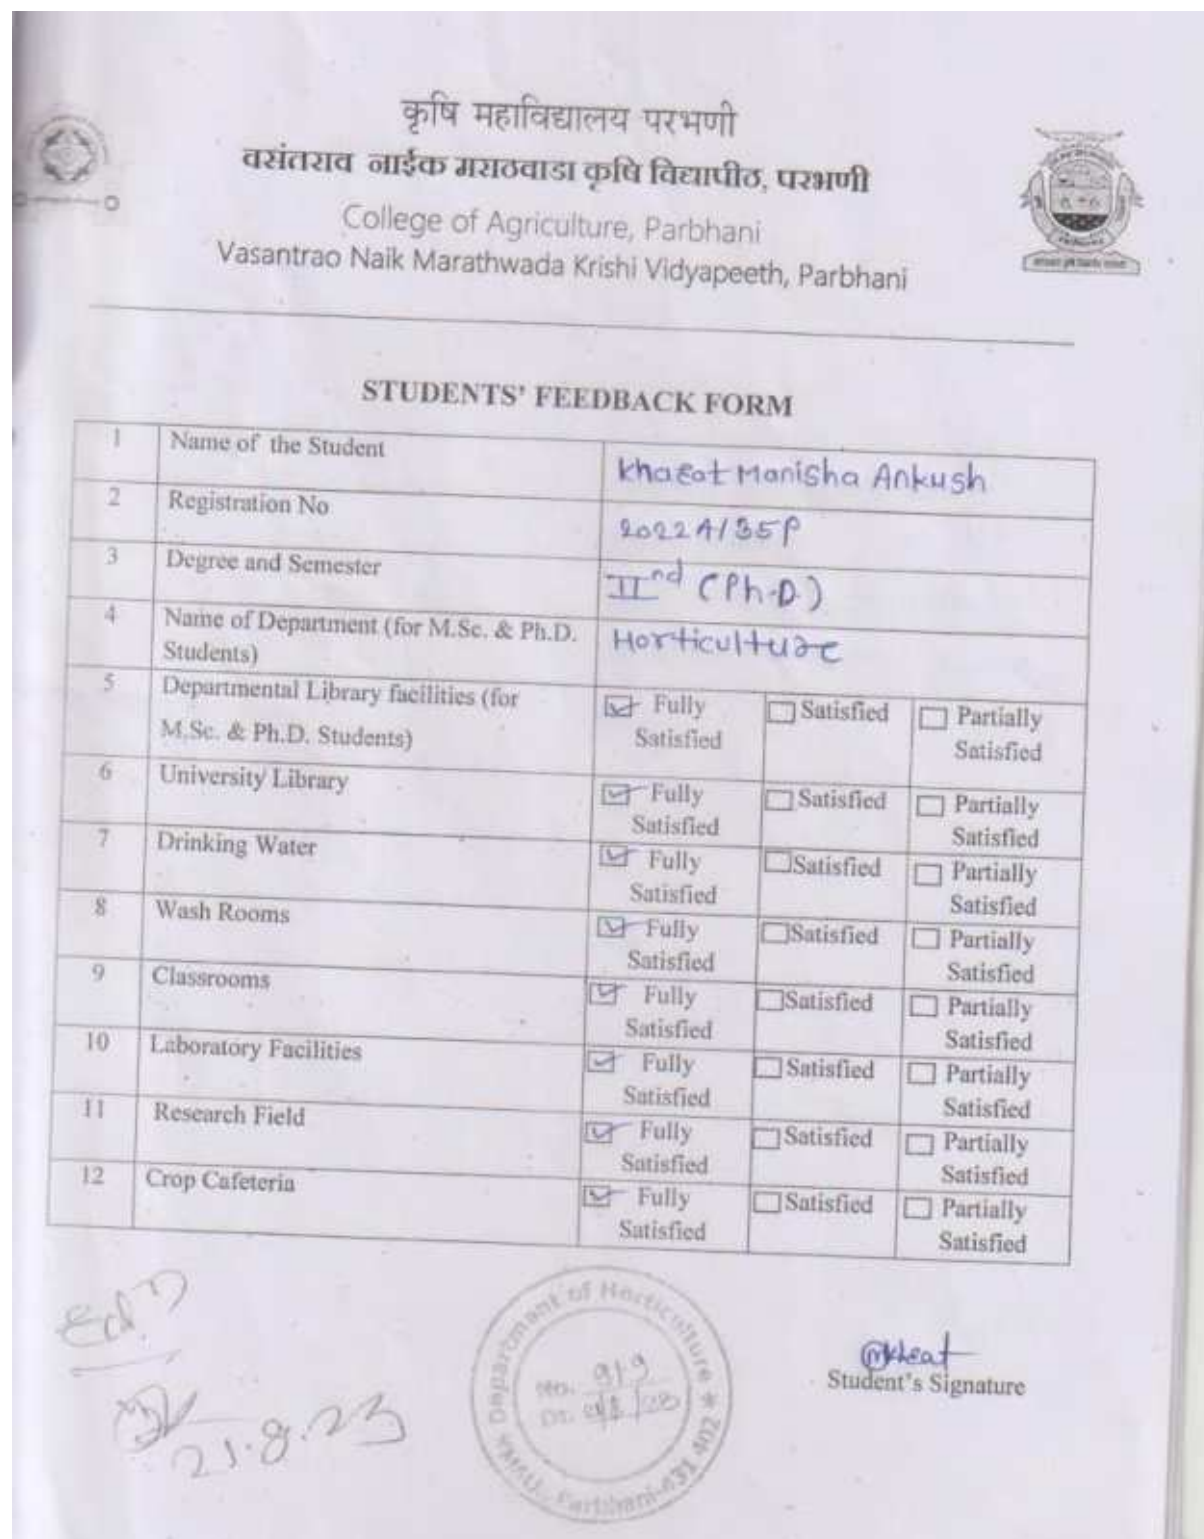 कृषि महाविद्यालय परभणी
वसंतराव नाईक मराठवाडा कृषि विद्यापीठ, परभणी
College of Agriculture, Parbhani
Vasantrao Naik Marathwada Krishi Vidyapeeth, Parbhani
STUDENTS' FEEDBACK FORM
1 Name of the Student Kharat Manisha Ankush
2 Registration No 2022A/35P
3 Degree and Semester IInd (Ph.D)
4 Name of Department (for M.Sc. & Ph.D. Students) Horticulture
5 Departmental Library facilities (for M.Sc. & Ph.D. Students) Fully Satisfied Satisfied Partially Satisfied
6 University Library Fully Satisfied Satisfied Partially Satisfied
7 Drinking Water Fully Satisfied Satisfied Partially Satisfied
8 Wash Rooms Fully Satisfied Satisfied Partially Satisfied
9 Classrooms Fully Satisfied Satisfied Partially Satisfied
10 Laboratory Facilities Fully Satisfied Satisfied Partially Satisfied
11 Research Field Fully Satisfied Satisfied Partially Satisfied
12 Crop Cafeteria Fully Satisfied Satisfied Partially Satisfied
Department of Horticulture
No. 919
Dt.
Parbhani-431 402
21.8.23
Student's Signature